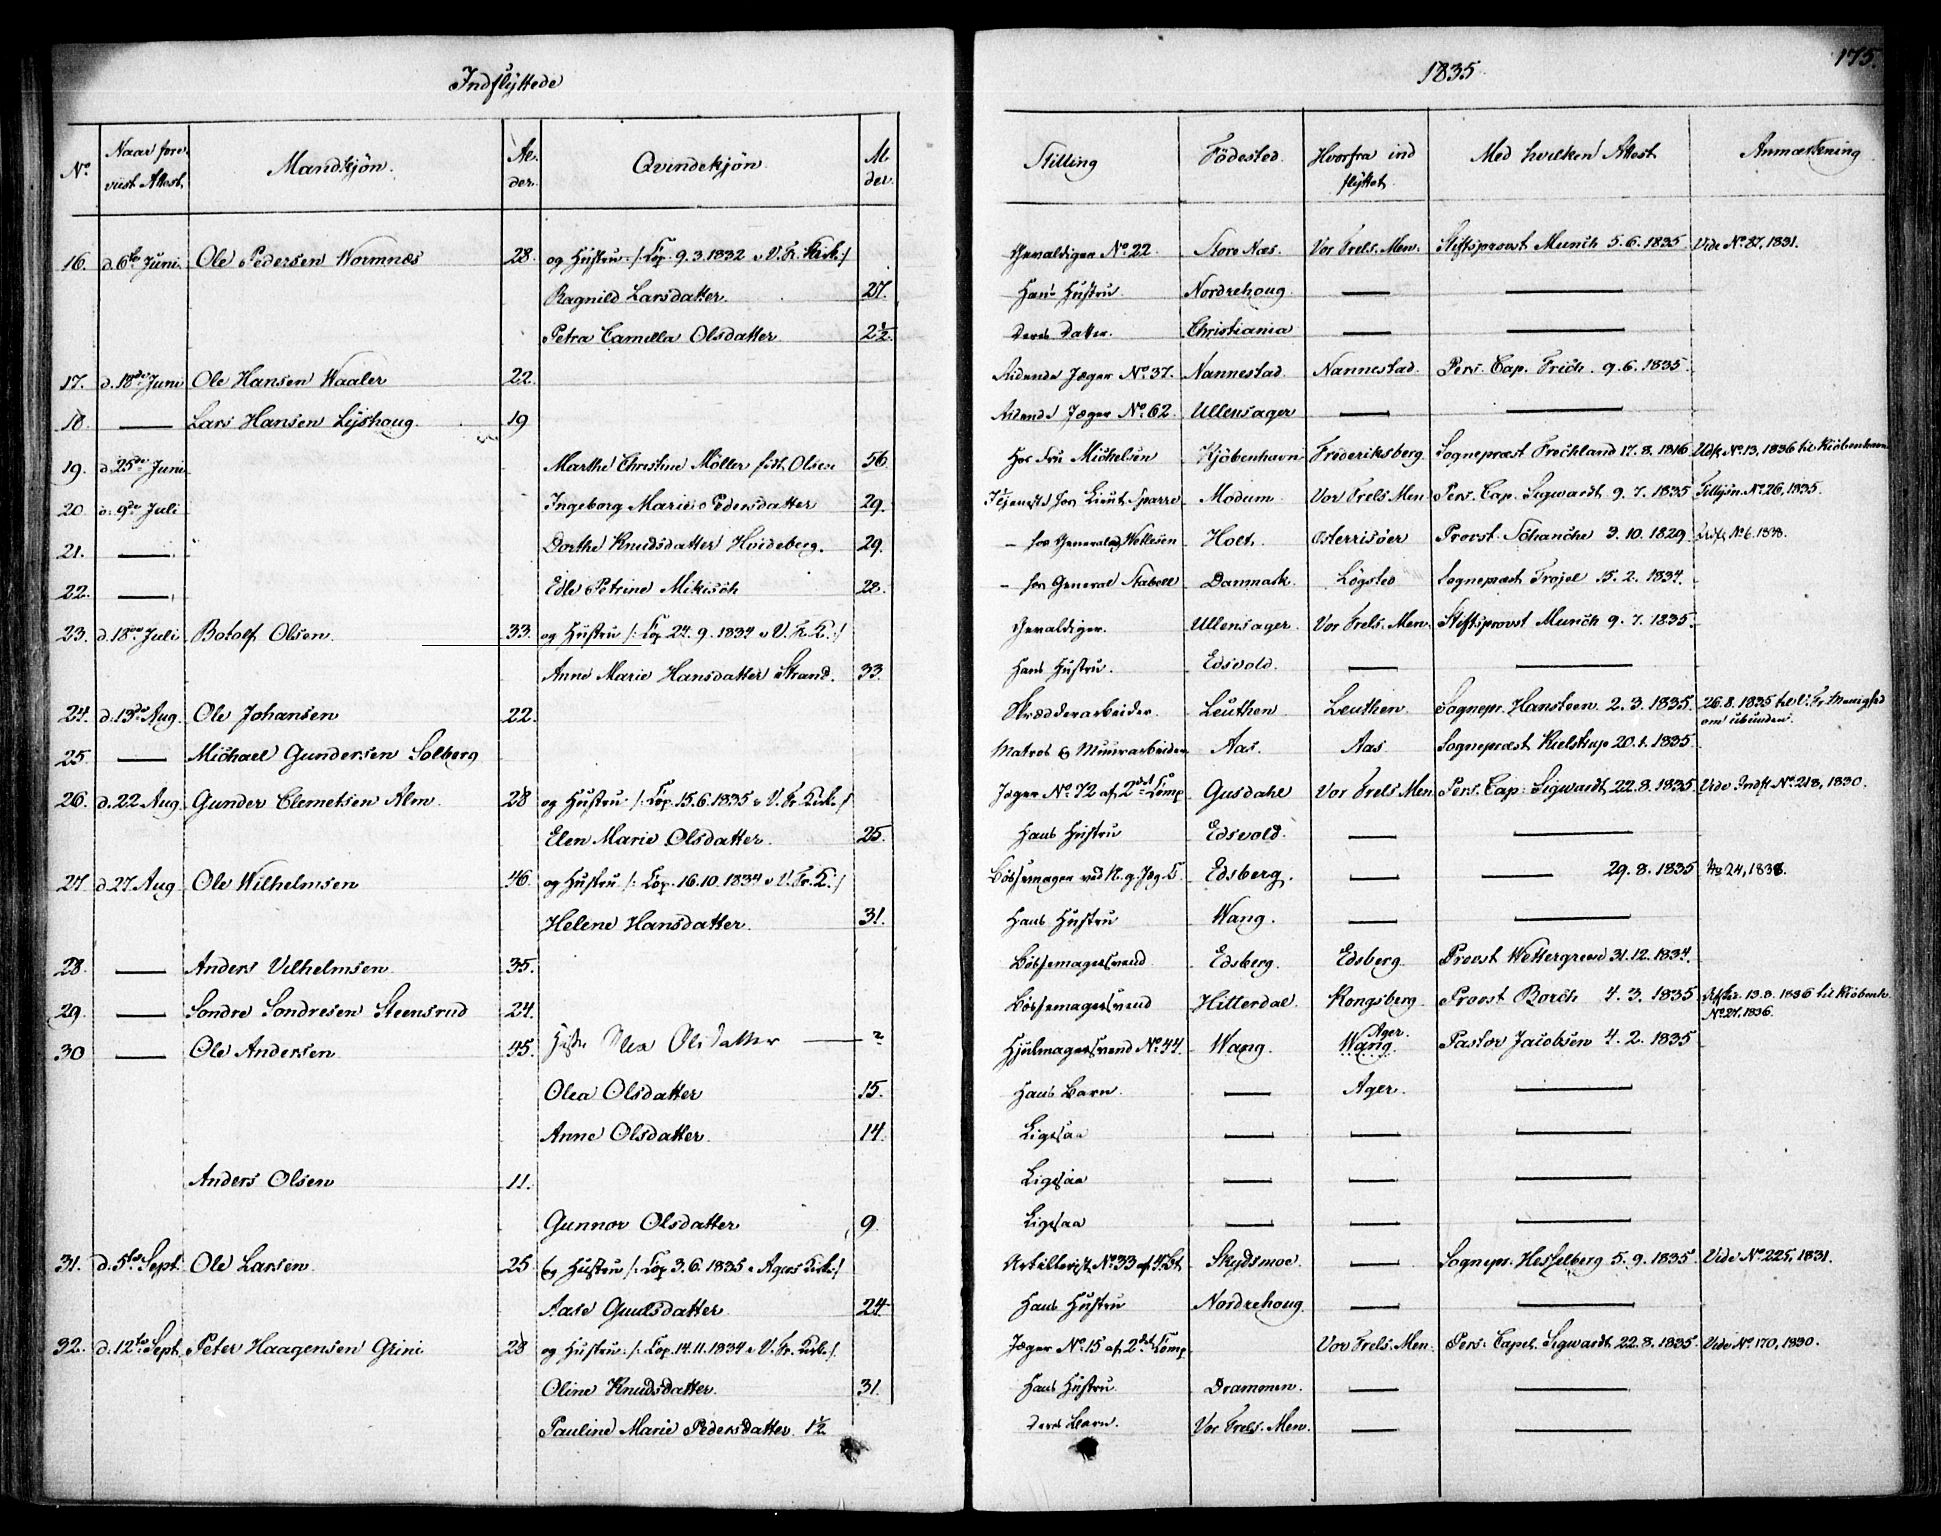 Indflyttede 1835 175.
No Naar fore- viist Attest Mandkjøn. Al- der. Qvindekjøn. Al der. Stilling Födested. Hvorfra ind flyttet. Med hvilken Attest Anmærkning
16. d. 6te Juni. Ole Pedersen Wormnæs 28. og Hustru /: Cop. 9.3.1832 i V. Fr. Kirk :/ Gevaldiger No 22. Store Næs. Vor Frels. Men. Stiftsprovst Munch 5.6.1835 Vide No 87, 1831.
Ragnild Larsdatter. 27. Hans Hustru. Nordrehoug. — —
Petra Camilla Olsdatter 2½. Deres Datter. Christiania — —
17. d. 18de Juni Ole Hansen Waaler 22. Ridende Jæger No 37. Nannestad. Nannestad. Pers. Cap. Frich. 9.6.1835.
18. — Lars Hansen Lyshoug. 19 Ridende Jæger No 62. Ullensager — —
19. d. 25de Juni Marthe Christine Möller föd Olsen 56. Hos Fru Michelsen Kjöbenhavn Frederiksberg Sognepræst Frechland 17.8.1816 Udfl. No 13, 1836 til Kiöbenhavn
20. d. 9de Juli Ingeborg Marie Pedersdatter 29. I Tjeneste hos Lieut. Sparre Modum. Vor Frels Men. Pers. Cap. Sigwardt 9.7.1835 Tillysn. No 26, 1835.
21. — Dorthe Knudsdatter Hoideberg. 29. — hos General Holt. Österrisöer Provst 3.10.1829
22. — Edle Petrine Mikisch 28. — hos General Danmark. Lögsted Sognepræst Trojel 15.2.1834.
23. d. 18de Juli Botolf Olsen. 33. og Hustru /: Cop. 24.9.1834 i V. Fr. K. :/ Gevaldiger. Ullensager. Vor Frels. Men. Stiftsprovst Munch 9.7.1835.
Anne Marie Hansdatter Strand. 33. Hans Hustru. Edsvold. — —
24. d. 13de Aug. Ole Johansen 22. Skrædderarbeider. Leuthen. Leuthen. Sognepr. Hansteen 2.3.1835. 26.8.1835 til V. Fr. Menighed
25. — Michael Gundersen Solberg Matros & Muurarbeider Aas. Aas Sognepræst Kielstrup 20.1.1835.
26. d. 22 Aug. Gunder Clemetsen Alm. 28 og Hustru /: Cop. 15.6.1835 i V. Fr. Kirk :/ Jæger No 72 af 2det Comp Gusdahl Vor Frels Men. Pers. Cap. Sigwardt 22.8.1835. Vide Indfl. No 218, 1830.
Elen Marie Olsdatter. 25. Hans Hustru Edsvold. — —
27. d. 27 Aug. Ole Wilhelmsen 46. og Hustru /: Cop. 16.10.1834 i V. Fr. K. :/ Bössemager ved N. g. Jæg. C. Edsberg. — — 29.8.1835 No 24, 1838.
Helene Hansdatter. 31. Hans Hustru Wang. — —
28. — Anders Vilhelmsen. 35. Bössemagersvend Edsberg. Edsberg. Provst Wettergreen 31.12.1834.
29. — Sondre Sondresen Steensrud 24. Bössemagersvend Hitterdal. Kongsberg. Provst Borch 4.3.1835 13.8.1836 til Kiöbenh. No 27, 1836.
30 — Ole Andersen 45. Hustr. Olea Olsdatter — ? Hjulmagersvend No 44. Wang. Ager. Wang Pastor Jacobsen 4.2.1835
Olea Olsdatter 15. Hans Barn. — Ager. —
Anne Olsdatter. 14. Ligesaa — — —
Anders Olsen 11. Ligesaa — — —
Gunnor Olsdatter 9. Ligesaa — — —
31. d. 5te Sept. Ole Larsen. 25 og Hustru /: Cop. 3.6.1835 i Agers Kirk :/ Artillerist No 33 af 4. Bt. Skydsmoe. — Sognepr. Hesselberg 5.9.1835 Vide No 225, 1831.
Aase Gulsdatter 24 Hans Hustru Nordrehoug. — —
32. d. 12te Sept. Peter Haagensen Grini 28 og Hustru /: Cop. 14.11.1834 i V. Fr. Kirk :/ Jæger No 15 af 2det Comp Vor Frels. Men. Pers. Capel. Sigwardt 22.8.1835. Vide No 170, 1830.
Oline Knudsdatter. 31. Hans Hustru. Drammen. — —
Pauline Marie Pedersdatter 1½ Deres Barn. Vor Frels. Men. — —